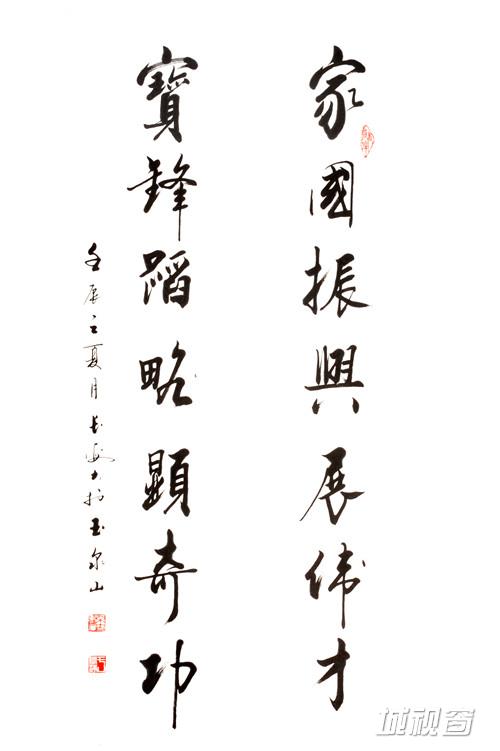 家國振興展伟才
寶鋒蹈略顯奇功
之夏月 大 玉泉山
城视窗